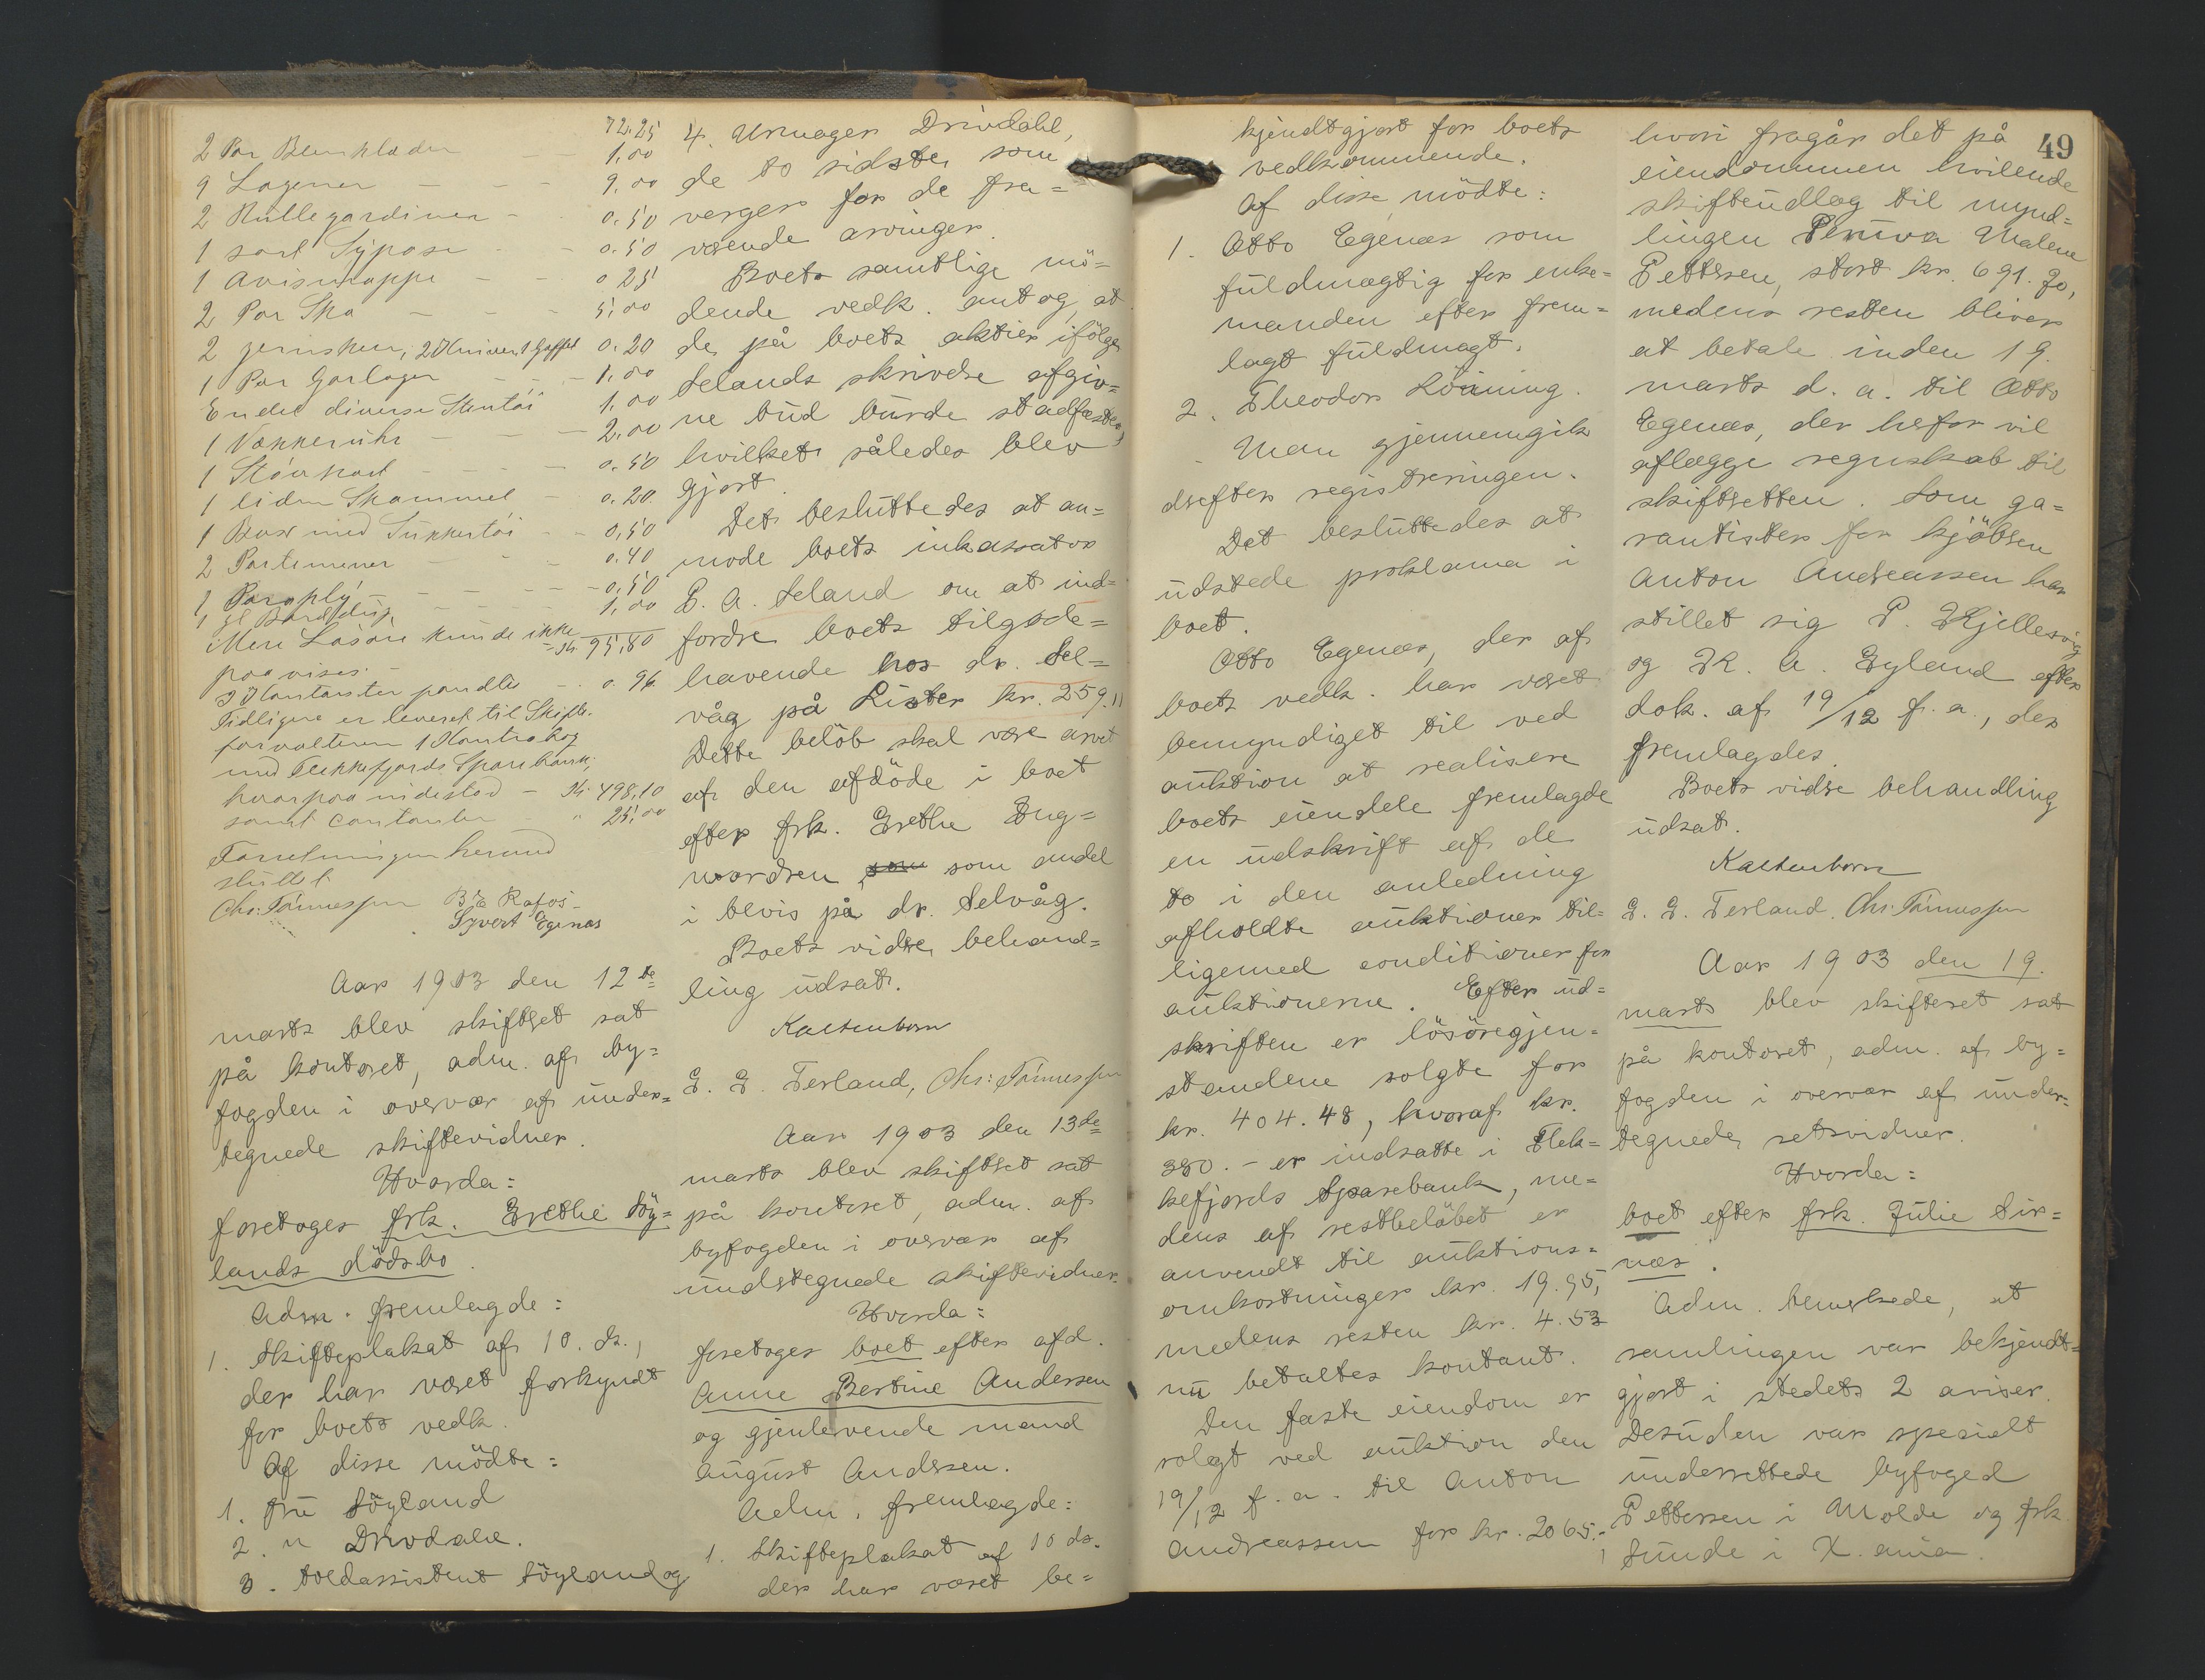 72.25
2 Par Benklæder — — 1.00
9 Lagener — — — 9.00
2 Rullegardiner — 0.50
1 sort Sypose — 0.50
1 Avismappe — — 0 25
2 Par Sko — — — 5.00
2 jernskeer, 2 Kniver, 1 Gaffel 0.20
1 Par Gorlager — — 1.00
Endel diverse Stentöi 1.00
1 Vækkeruhr — — — 2.00
1 Stövkost — — — — 0.50
1 liden Skammel — 0.20.
1 Box med Sukkertöi — — 0,50
2 Portemoner — — 0.40
1 Paraply — — — — 0,50
1 gl Borddug — — — 1,00
Mere Lösöre kunde ikke — Kr. 95,80
paavises. —
I Kontanter fandtes — . 0.96
Tidligere er leveret til Skifte-
forvalteren 1 Kontrabog
med Flekkefjords Sparebank,
hvorpaa indestod — Kr 498,10
samt Contanter " 25,00
Forretningen hermed
sluttet.
Chr: Tönnessen B. Rafos-
Syvert Egenæs
Aar 1903 den 12te
marts blev skifteret sat
på kontoret, adm. af by=
fogden i overvær af under=
tegnede skiftevidner.
Hvorda:
foretoges frk. Grethe Söy=
lands dödsbo.
Adm. fremlagde:
1. Skifteplakat af 10. ds.,
der har været forkyndt
for boets vedk.
Af disse mödte:
1. Fru Söyland
2. " Drivdahl.
3. toldassistent Söyland og
4. Urmager Drivdahl,
de to sidste som
verger for de fra=
værende arvinger.
Boets samtlige mö=
dende vedk. antog, at
de på boets aktier ifölge
Selands skrivelse afgiv=
ne bud burde stadfæstes,
hvilket således blev
gjort.
Det besluttedes at an=
mode boets inkassator
E. A. Seland om at ind=
fordre boets tilgode=
havende hos dr. Sel=
våg på Lister kr. 259.11
Dette belöb skal være arvet
af den afdöde i boet
efter frk. Grethe Bug=
wordsen som som andel
i bevis på dr. Selvåg.
Boets videre behand=
ling udsat.
Kaltenborn
G. G. Tesland, Chr: Tönnessen
Aar 1903 den 13de
marts blev skifteret sat
på kontoret, adm. af
byfogden i overvær af
undertegnede skiftevidner.
Hvorda:
foretoges boet efter afd.
Anne Bertine Andersen
og gjenlevende mand
August Andersen.
Adm. fremlagde:
1. Skifteplakat af 10 ds.
der har været be=
kjendtgjort for boets
vedkommende.
Af disse mödte:
1. Otto Egenæs som
fuldmægtig for enke=
manden efter frem=
lagt fuldmagt.
2. Theodor Löining.
Man gjennemgik
derefter registreringen.
Det besluttedes at
udstede proklama i
boet.
Otto Egenæs, der af
boets vedk. har været
bemyndiget til ved
auktion at realisere
boets eiendele fremlagde
en udskrift af de
to i den anledning
afholdte auktioner til=
ligemed conditioner for
auktionerne. Efter ud=
skriften er lösöregjen=
standene solgte for
kr. 404.48, hvoraf kr.
380.- er indsatte i Flek=
kefjords Sparebank, me=
dens af restbelöbet er
anvendt til auktions=
omkostninger kr. 19.95,
medens resten kr. 4.53
nu betaltes kontant.
Den faste eiendom er
solgt ved auktion den
19/12 f. a. til Anton
Andreassen for kr. 2065.-,
49
hvori fragår det på
eiendommen hvilende
skifteudlæg til mynd=
lingen Malene
Pettersen, stort kr. 691.70,
medens resten bliver
at betale inden 19.
marts d. a. til Otto
Egenæs, der herfor vil
aflægge regnskab til
skifteretten. Som ga=
rantister for kjöberen
Anton Andreassen har
stillet sig P. Kjellesvig
og K. A. Eyland efter
dok. af 19/12 f. a., der
fremlagdes.
Boets videre behandling
udsat.
Kaltenborn
G. G. Tesland. Chr: Tönnessen
Aar 1903 den 19.
marts blev skifteret sat
på kontoret, adm. af by=
fogden i overvær af under=
tegnede retsvidner.
Hvorda:
boet efter frk. Julie Sir=
næs.
Adm. bemerkede, at
samlingen var bekjendt=
gjort i stedets 2 aviser.
Desuden var specielt
underrettede byfoged
Pettersen i Molde og frk.
Sunde i X.ania.